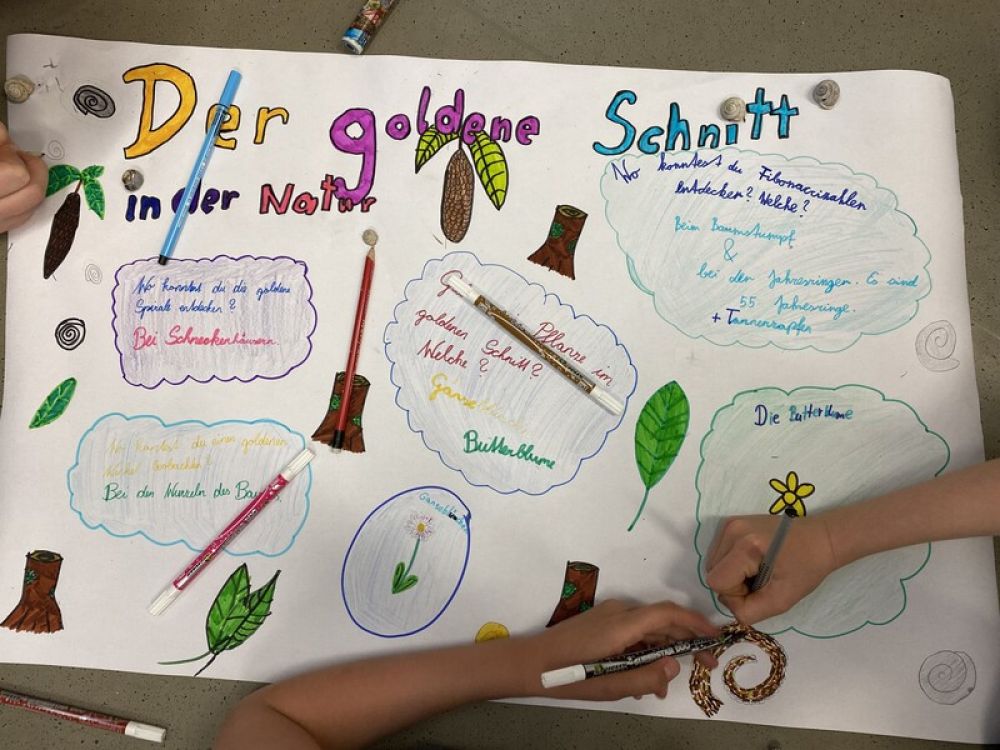 Der goldene Schnitt
in der Natur
Wo konntest du Fibonaccizahlen
entdecken? Welche?
Beim Baumstumpf
&
bei den Jahresringen. Es sind
55 Jahresringe.
+ Tannenzapfen
Wo konntest du die goldene
Spirale entdecken?
Bei Schneckenhäusern.
Pflanze im
goldenen Schnitt?
Welche?
Gänseblümchen
Butterblume
Wo konntest du einen goldenen
Winkel beobachten?
Bei den Wurzeln des
Gänseblümchen
Die Butterblume